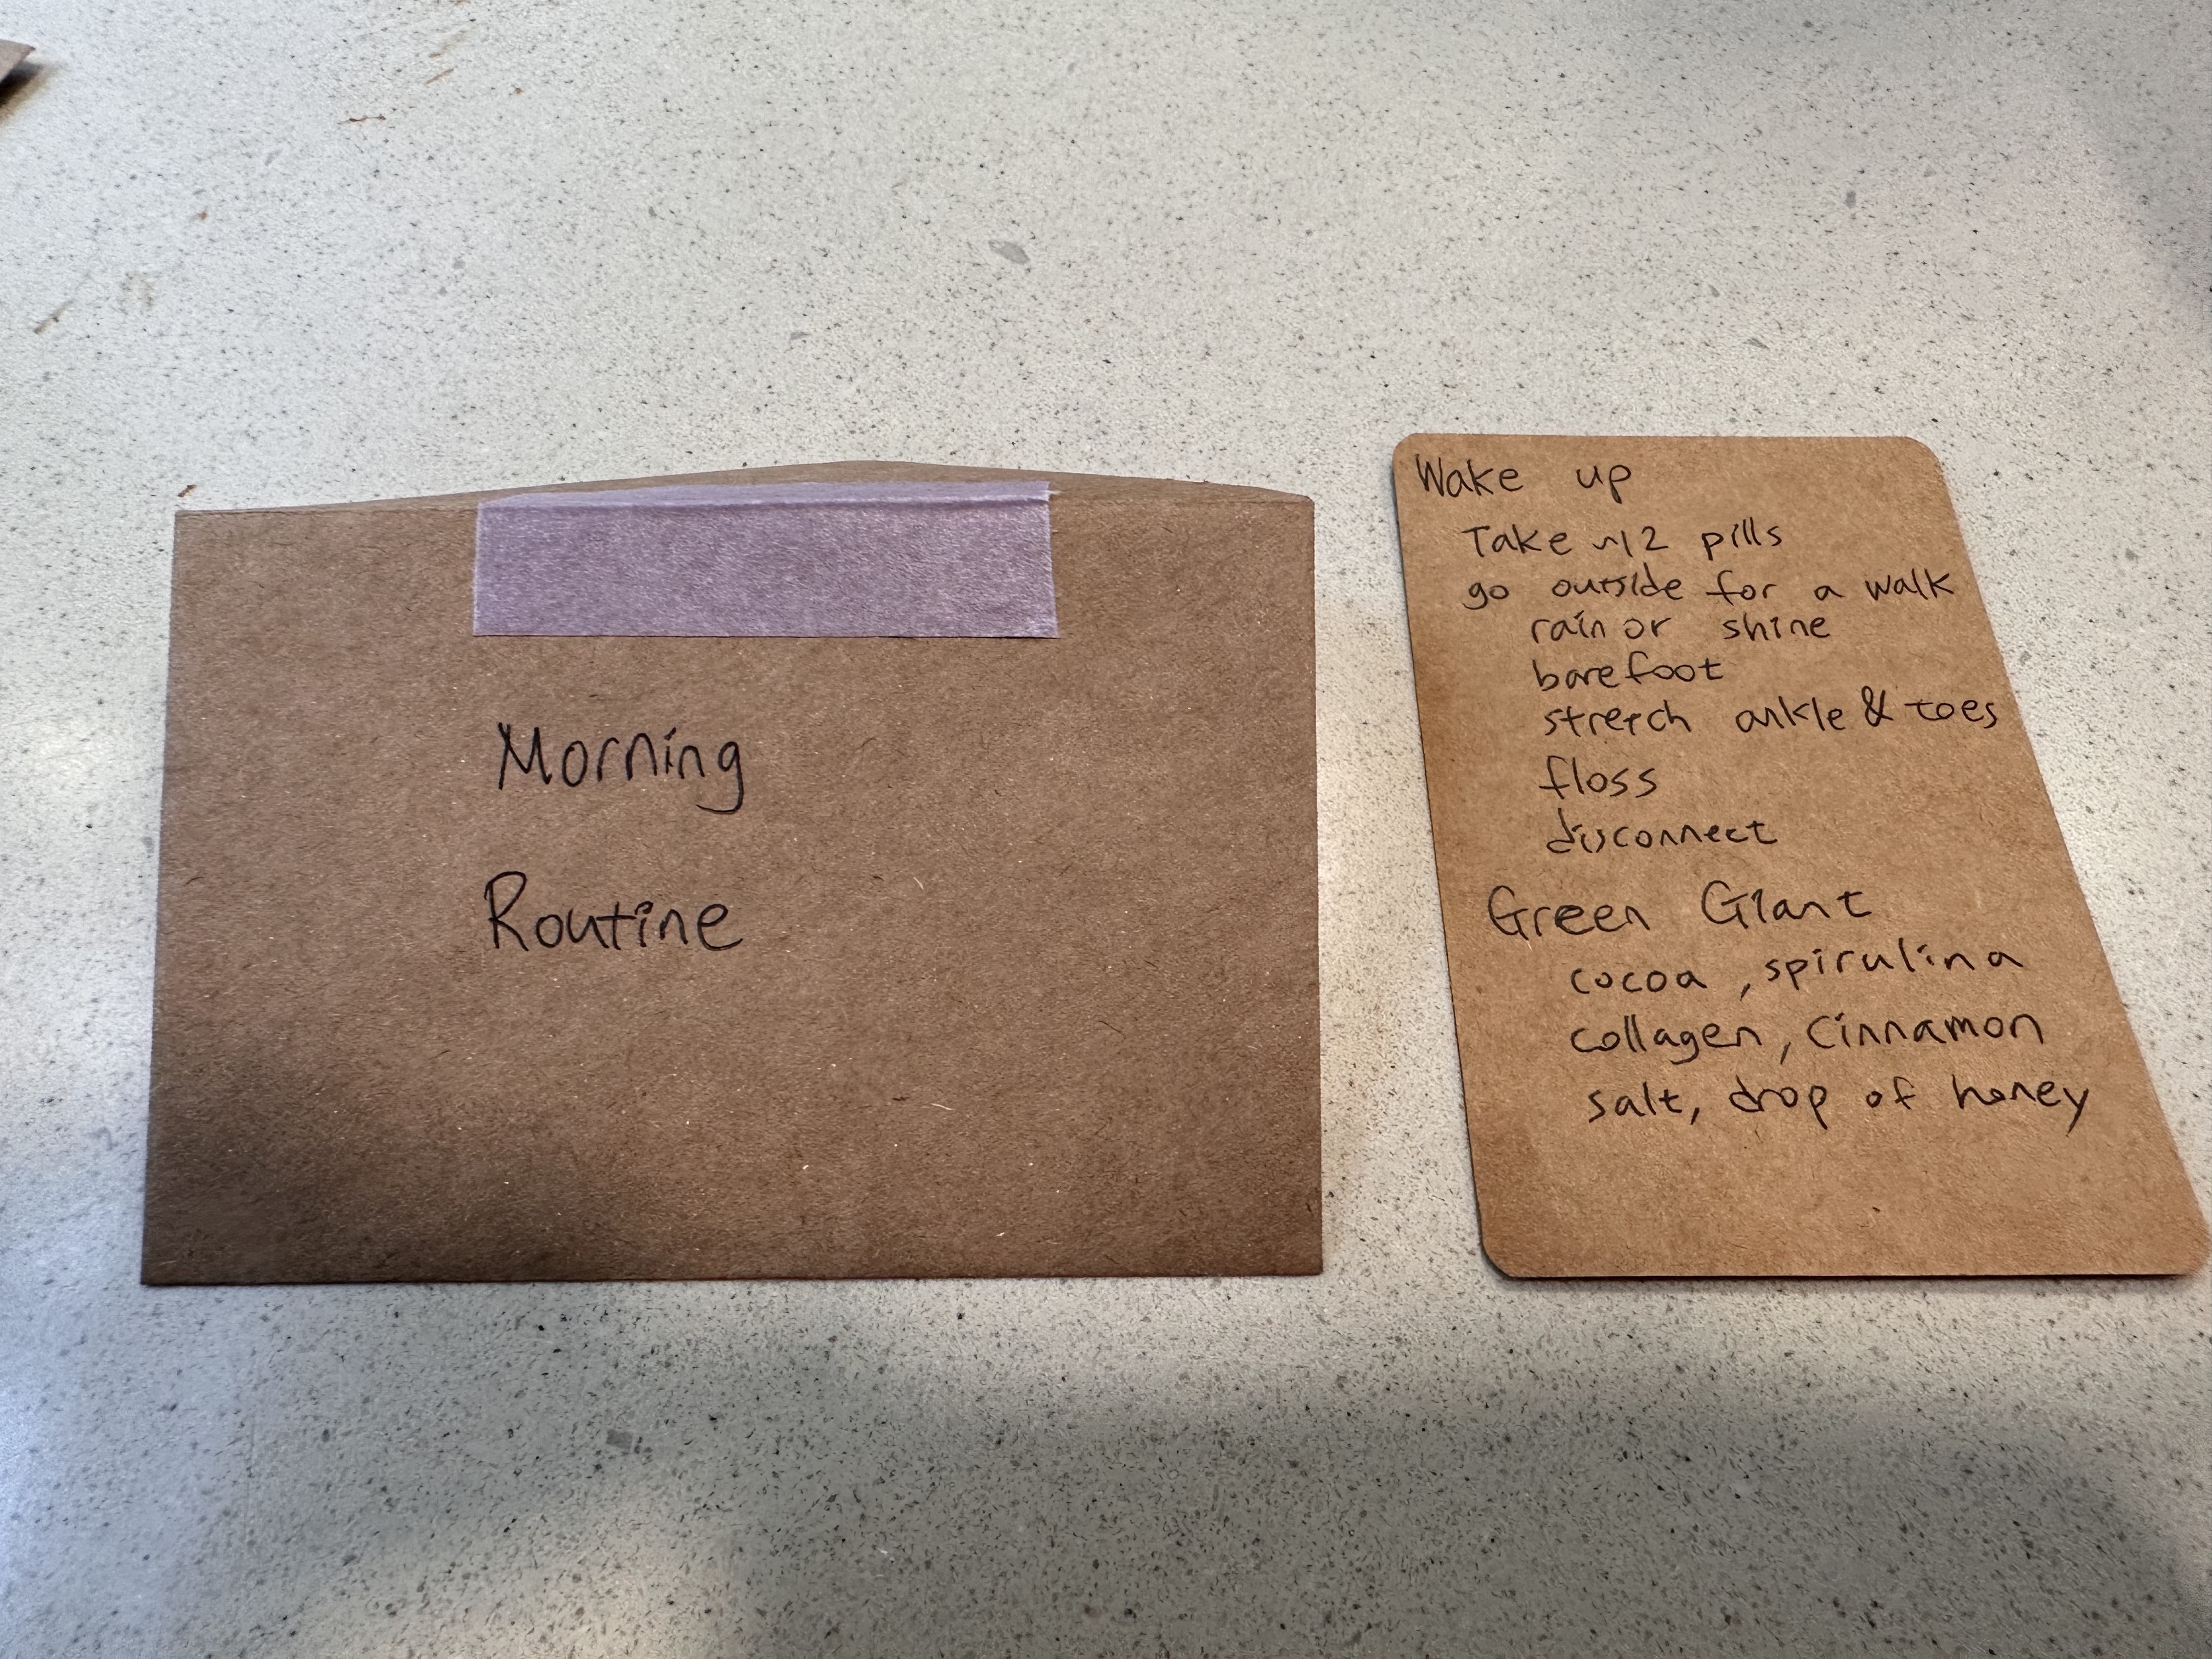 Morning
Routine
Wake up
Take ~12 pills
go outside for a walk
rain or shine
barefoot
stretch ankle & toes
floss
disconnect
Green Giant
cocoa, spirulina
collagen, cinnamon
salt, drop of honey